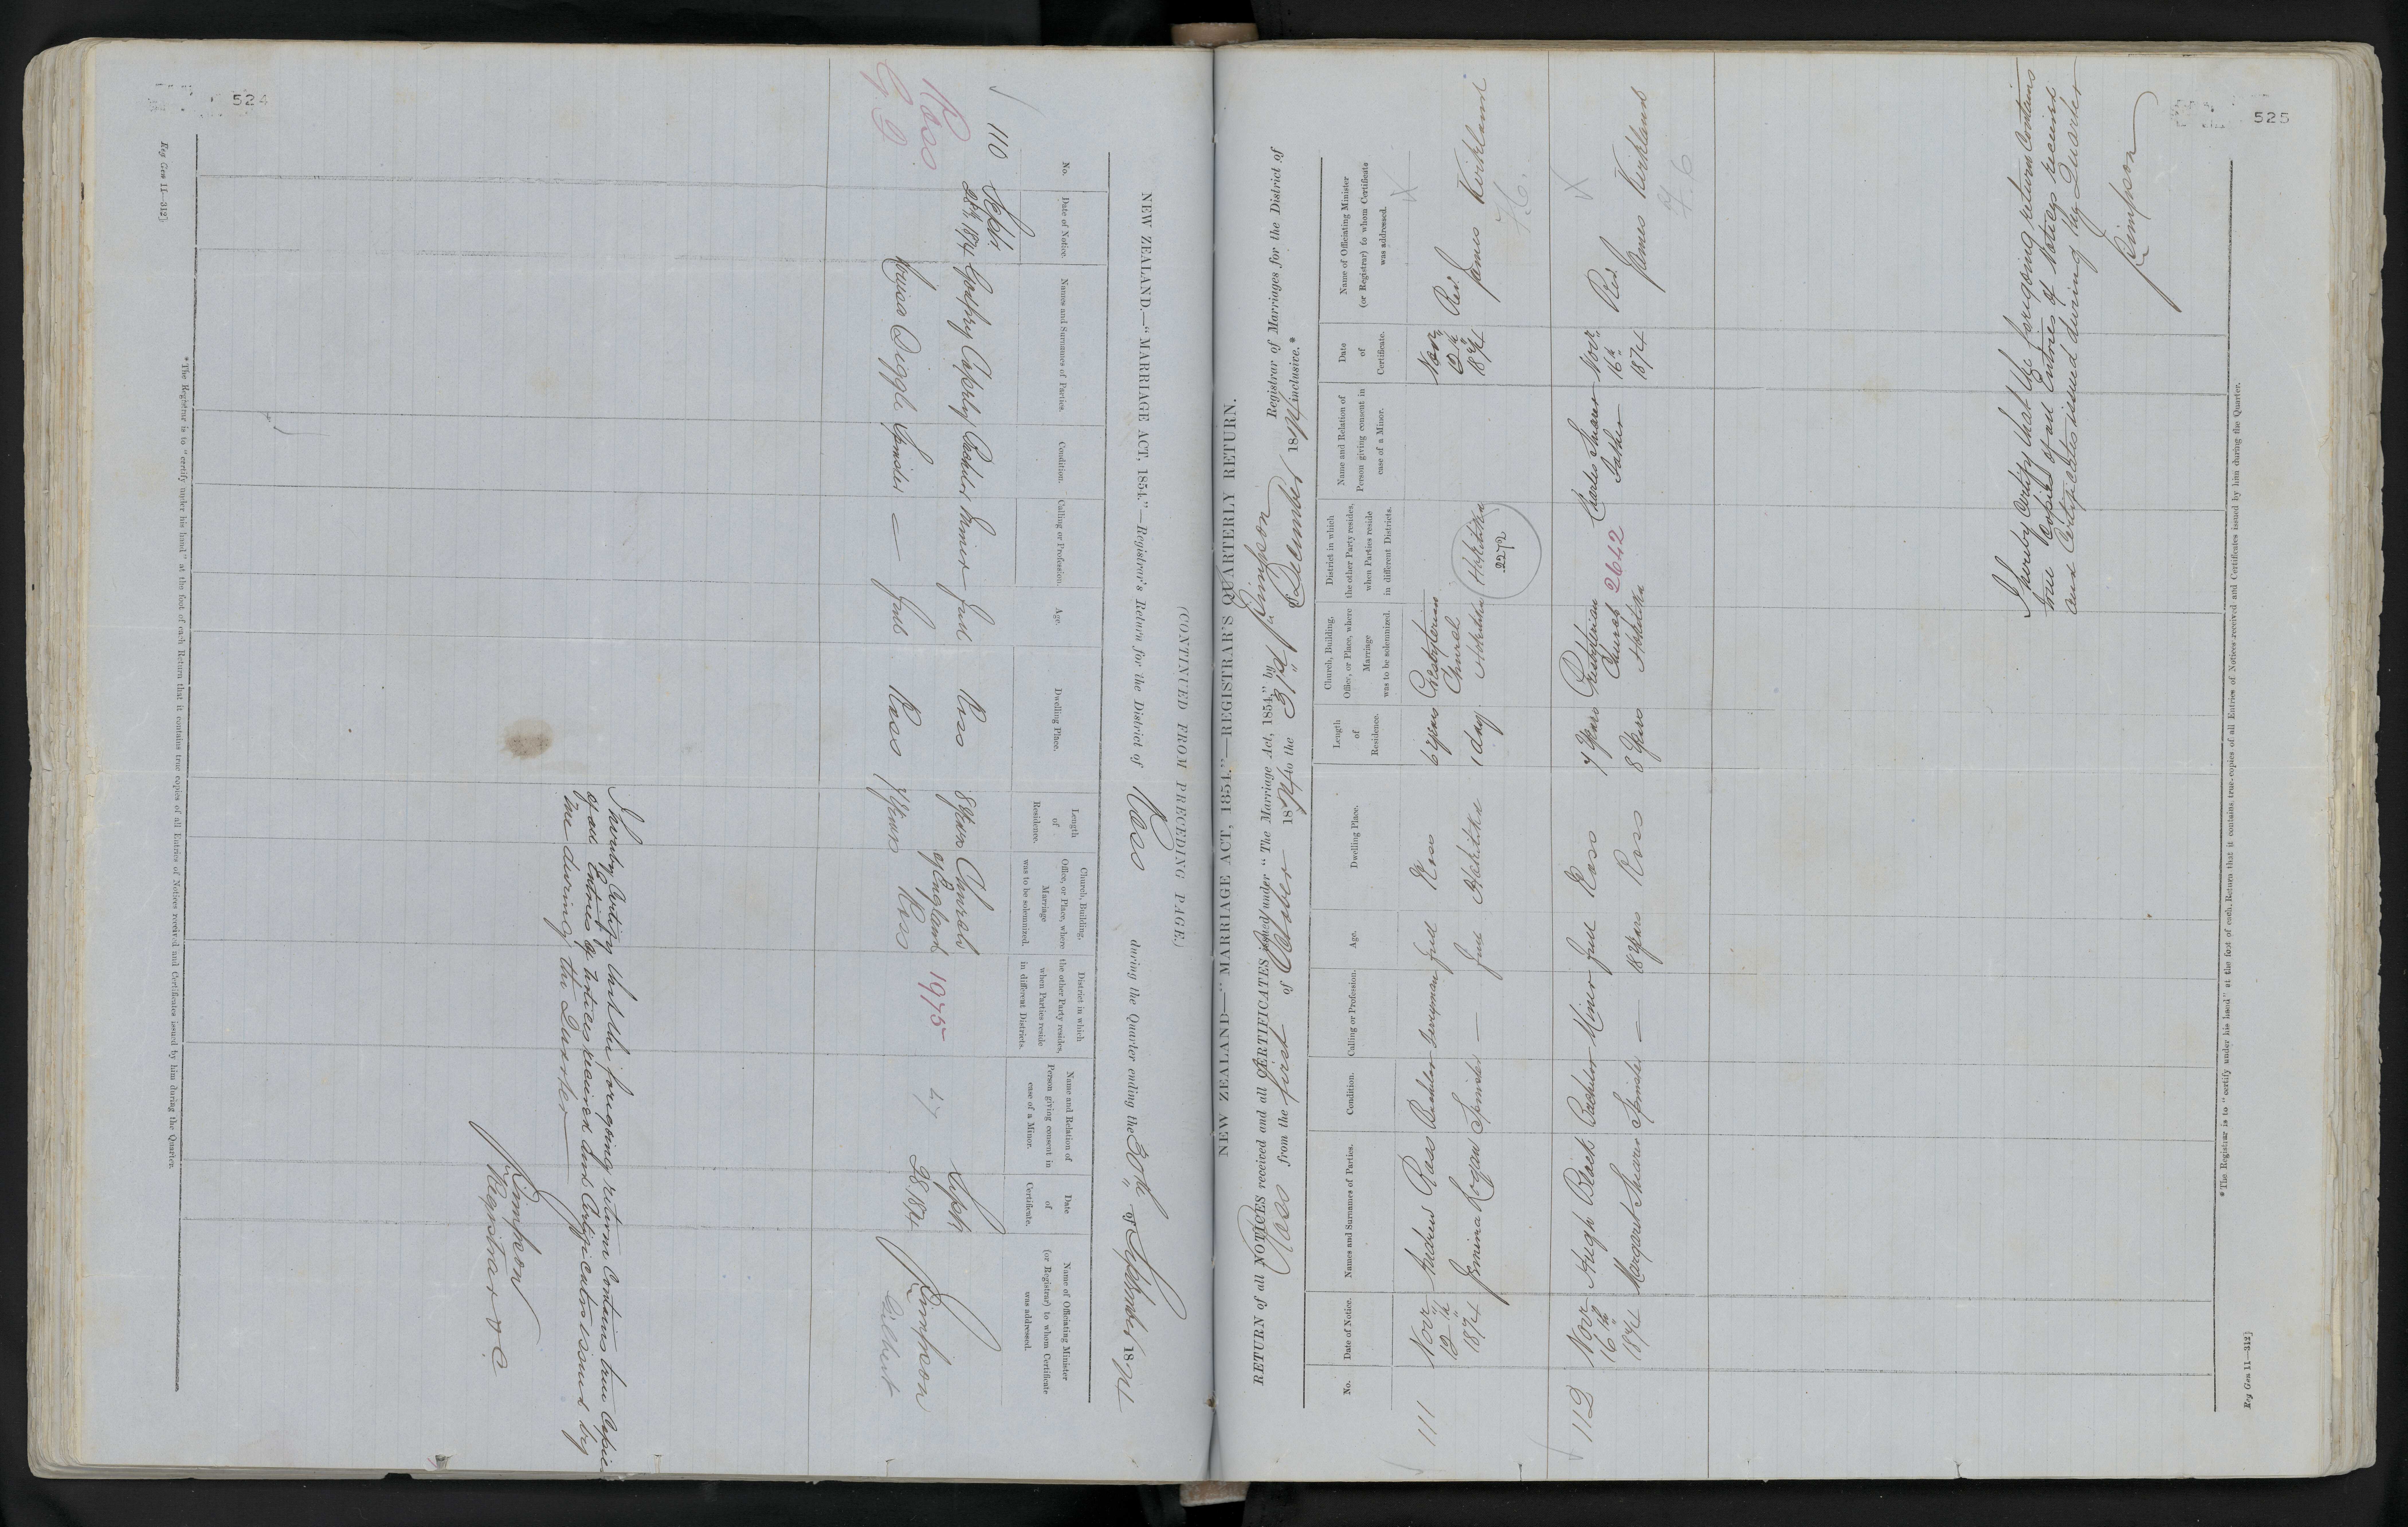 524
(CONTINUED FROM PRECEDING PAGE.)
NEW ZEALAND.—"MARRIAGE ACT, 1854."—Registrar's Return for the District of Ross during the Quarter ending the 30th of September 1874
No.
Date of Notice.
Names and Surnames of Parties.
Condition.
Calling or Profession.
Age.
Dwelling Place.
Length
of
Residence.
Church, Building,
Office, or Place, where
Marriage
was to be solemnized.
District in which
the other Party resides,
when Parties reside
in different Districts.
Name and Relation of
Person giving consent in
case of a Minor.
Date
of
Certificate.
Name of Officiating Minister
(or Registrar) to whom Certificate
was addressed.
110 Sept.
28th 1874 Godfrey Bachelor Miner full Ross 8 years Church of England Sept 28 1874
Ross
Louisa Diggle Spinster — full Ross 7 years Ross 1975
Gilbert
I hereby Certify that the foregoing return Contains true Copies
of all Entries of notices received and Certificates issued by
me during the Quarter
Simpson
Registrar
*The Registrar is to "certify under his hand" at the foot of each Return that it contains true copies of all Entries of Notices received and Certificates issued by him during the Quarter.
Reg Gen 11—312]
525
NEW ZEALAND—"MARRIAGE ACT, 1854."—REGISTRAR'S QUARTERLY RETURN.
RETURN of all NOTICES received and all CERTIFICATES issued under "The Marriage Act, 1854," by Simpson Registrar of Marriages for the District of
Ross from the first of October 1874 to the 31st December 1874 inclusive.*
No.
Date of Notice.
Names and Surnames of Parties.
Condition.
Calling or Profession.
Age.
Dwelling Place.
Length
of
Residence.
Church, Building,
Office, or Place, where
Marriage
was to be solemnized.
District in which
the other Party resides,
when Parties reside
in different Districts.
Name and Relation of
Person giving consent in
case of a Minor.
Date
of
Certificate.
Name of Officiating Minister
(or Registrar) to whom Certificate
was addressed.
111 Novr 1874 Andrew Ross Bachelor full Ross 6 years Presbyterian Church Hokitika Novr 1874 Rev. James Kirkland
Jemima Logan Spinster — full Hokitika 1 day Hokitika
2272
112 Novr 16th 1874 Hugh Black Bachelor Miner full Ross 7 years Presbyterian Church Hokitika Charles Shearer Father Novr 16th 1874 Rev. James Kirkland
Margaret Shearer Spinster — 18 years Ross 8 years 2642
I hereby Certify that the foregoing return Contains
true Copies of all Entries of Notices received
and Certificates issued during the Quarter
Simpson
*The Registrar is to "certify under his hand" at the foot of each Return that it contains true copies of all Entries of Notices received and Certificates issued by him during the Quarter.
Reg Gen 11—312]